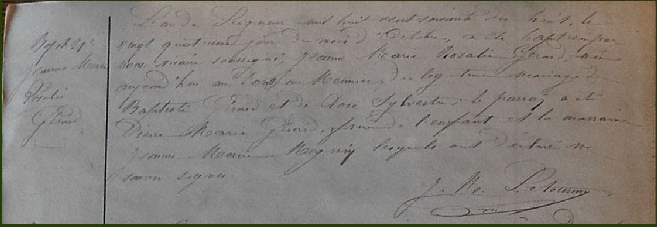 Bapt. 28
Jeanne Marie
Rosalie
Gérard
L'an de Seigneur mil huit cent soixante dix huit, le
vingt quatrième jour du mois d'Octobre, a été baptisée par
nous vicaire soussigné, Jeanne Marie Rosalie Gérard née
aujourd'hui au du légitime mariage de
Baptiste Gérard et de Sylvestre; le parrain a été
Pierre Marie Gérard, frère de l'enfant et la marraine
Jeanne Marie lesquels ont déclaré ne
savoir signer.